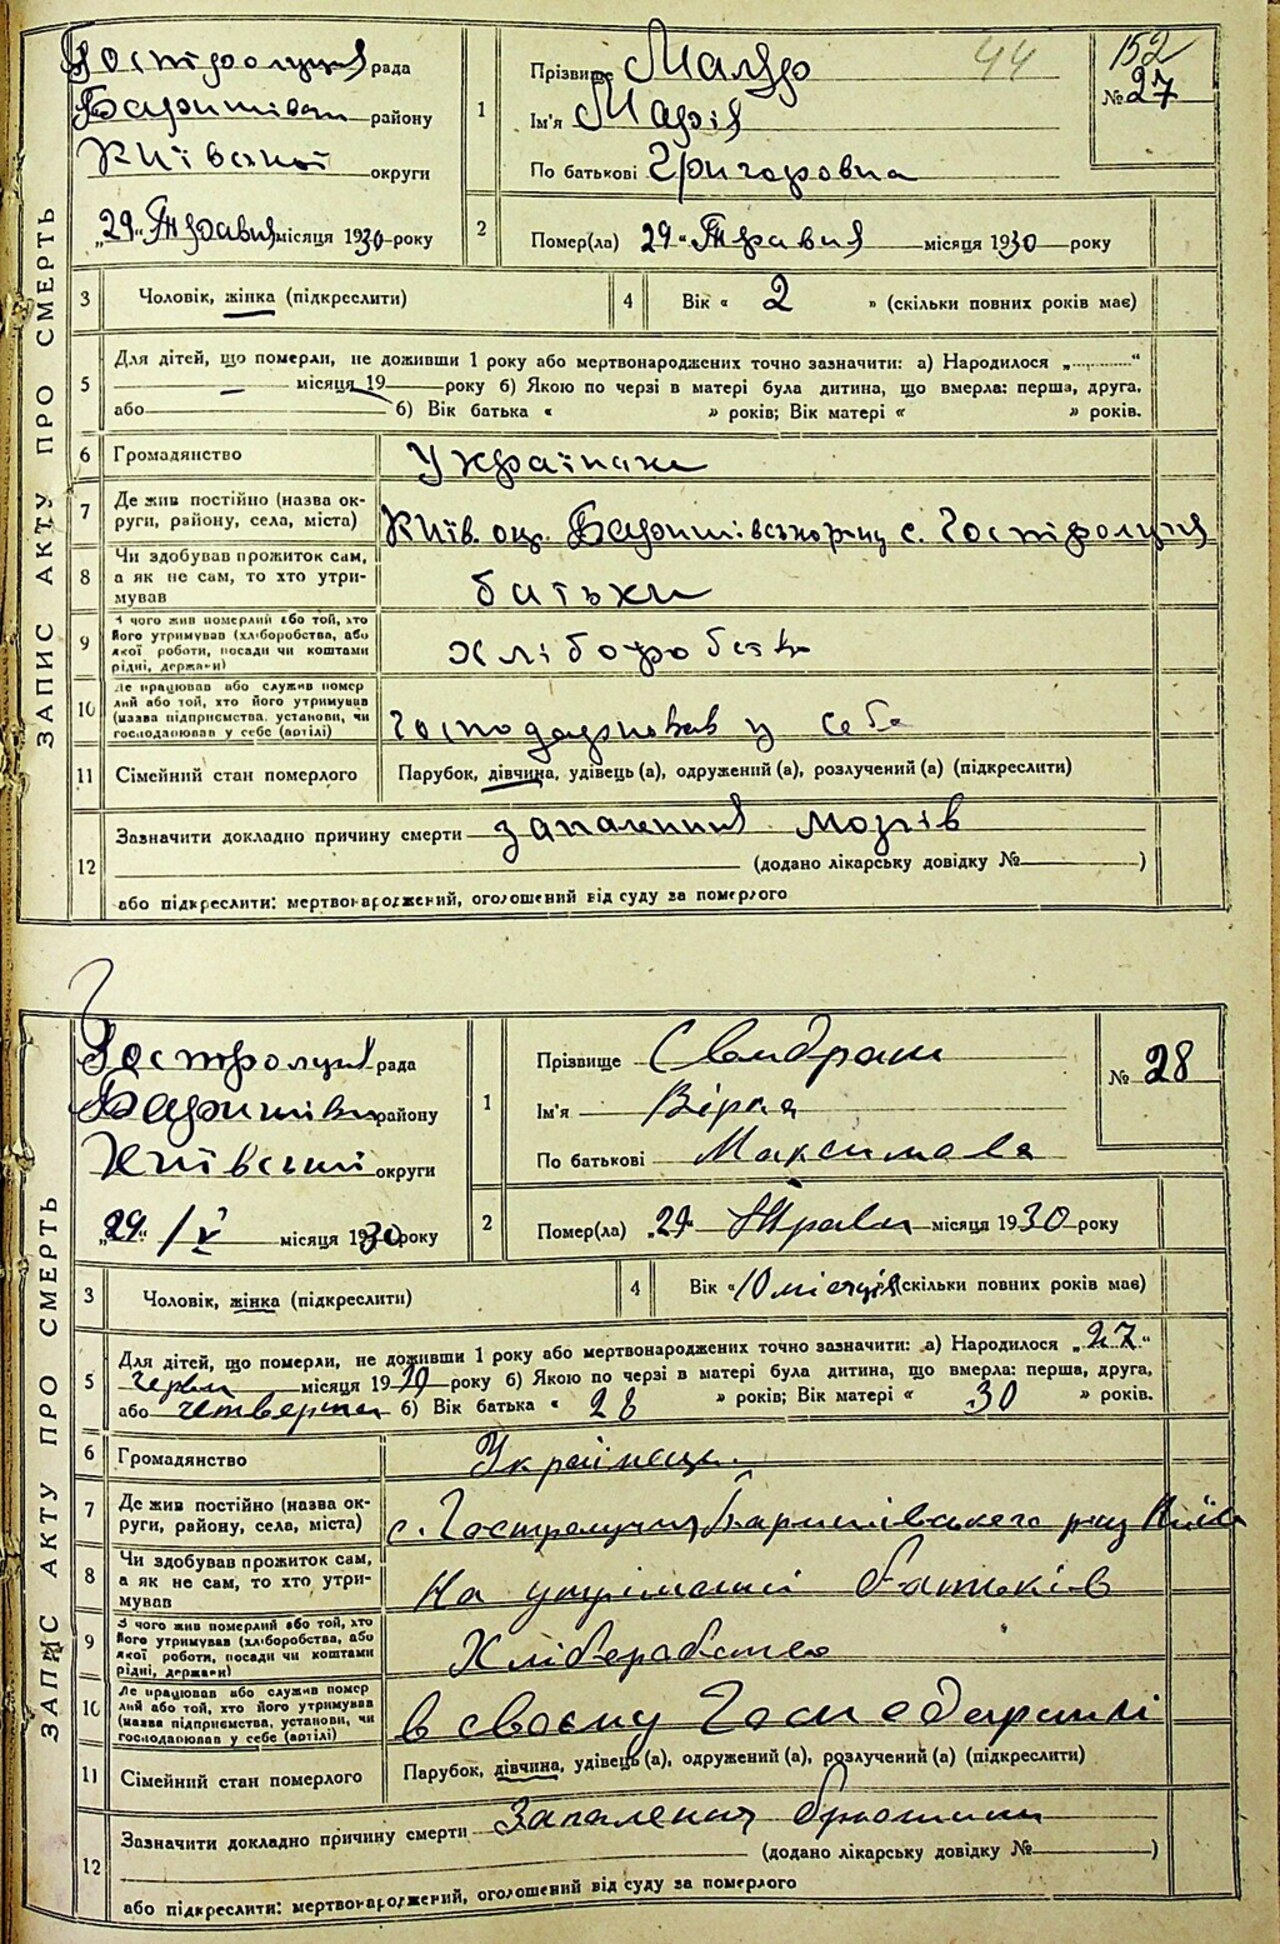 44
152
Гостролуцька рада
Баришівськ району
Київської округи
„29“ Травня місяця 1930 року
1
Прізвище Мазур
Ім'я Марія
По батькові Григоровна
№ 27
2
Помер(ла) 29 „ Травня місяця 1930 року
ЗАПИС АКТУ ПРО СМЕРТЬ
3
Чоловік, жінка (підкреслити)
4
Вік « 2 » (скільки повних років має)
5
Для дітей, що померли, не доживши 1 року або мертвонароджених точно зазначити: а) Народилося „..........“
— місяця 19 року б) Якою по черзі в матері була дитина, що вмерла: перша, друга,
або б) Вік батька « » років; Вік матері « » років.
6
Громадянство Українка
7
Де жив постійно (назва ок-
руги, району, села, міста)
Київ. окр. Баришівського р-ну с. Гостролуччя
8
Чи здобував прожиток сам,
а як не сам, то хто утри-
мував
батьки
9
З чого жив померлий або той, хто
його утримував (хліборобства, або
якої роботи, посади чи коштами
рідні, держави)
Хліборобство
10
Де працював або служив помер
лий або той, хто його утримував
(назва підприємства, установи, чи
господарював у себе (артілі)
Господарював у себе
11
Сімейний стан померлого
Парубок, дівчина, удівець (а), одружений (а), розлучений (а) (підкреслити)
12
Зазначити докладно причину смерти запалення мозгів
(додано лікарську довідку № )
або підкреслити: мертвонароджений, оголошений від суду за померлого
Гостролуцька рада
Баришівськ району
Київської округи
„29“ /V місяця 1930 року
1
Прізвище
Ім'я Вірка
По батькові Максимова
№ 28
2
Помер(ла) „29“ Травня місяця 1930 року
ЗАПИС АКТУ ПРО СМЕРТЬ
3
Чоловік, жінка (підкреслити)
4
Вік « 10 місяців (скільки повних років має)
5
Для дітей, що померли, не доживши 1 року або мертвонароджених точно зазначити: а) Народилося „27“
червня місяця 1929 року б) Якою по черзі в матері була дитина, що вмерла: перша, друга,
або четверта б) Вік батька « 28 » років; Вік матері « 30 » років.
6
Громадянство Українець.
7
Де жив постійно (назва ок-
руги, району, села, міста)
с. Гостролуччя Баришівського р-ну Київ
8
Чи здобував прожиток сам,
а як не сам, то хто утри-
мував
На утріманні батьків
9
З чого жив померлий або той, хто
його утримував (хліборобства, або
якої роботи, посади чи коштами
рідні, держави)
Хліборобство
10
Де працював або служив помер
лий або той, хто його утримував
(назва підприємства, установи, чи
господарював у себе (артілі)
в своєму Господарстві
11
Сімейний стан померлого
Парубок, дівчина, удівець (а), одружений (а), розлучений (а) (підкреслити)
12
Зазначити докладно причину смерти Запалення брюшини
(додано лікарську довідку № )
або підкреслити: мертвонароджений, оголошений від суду за померлого